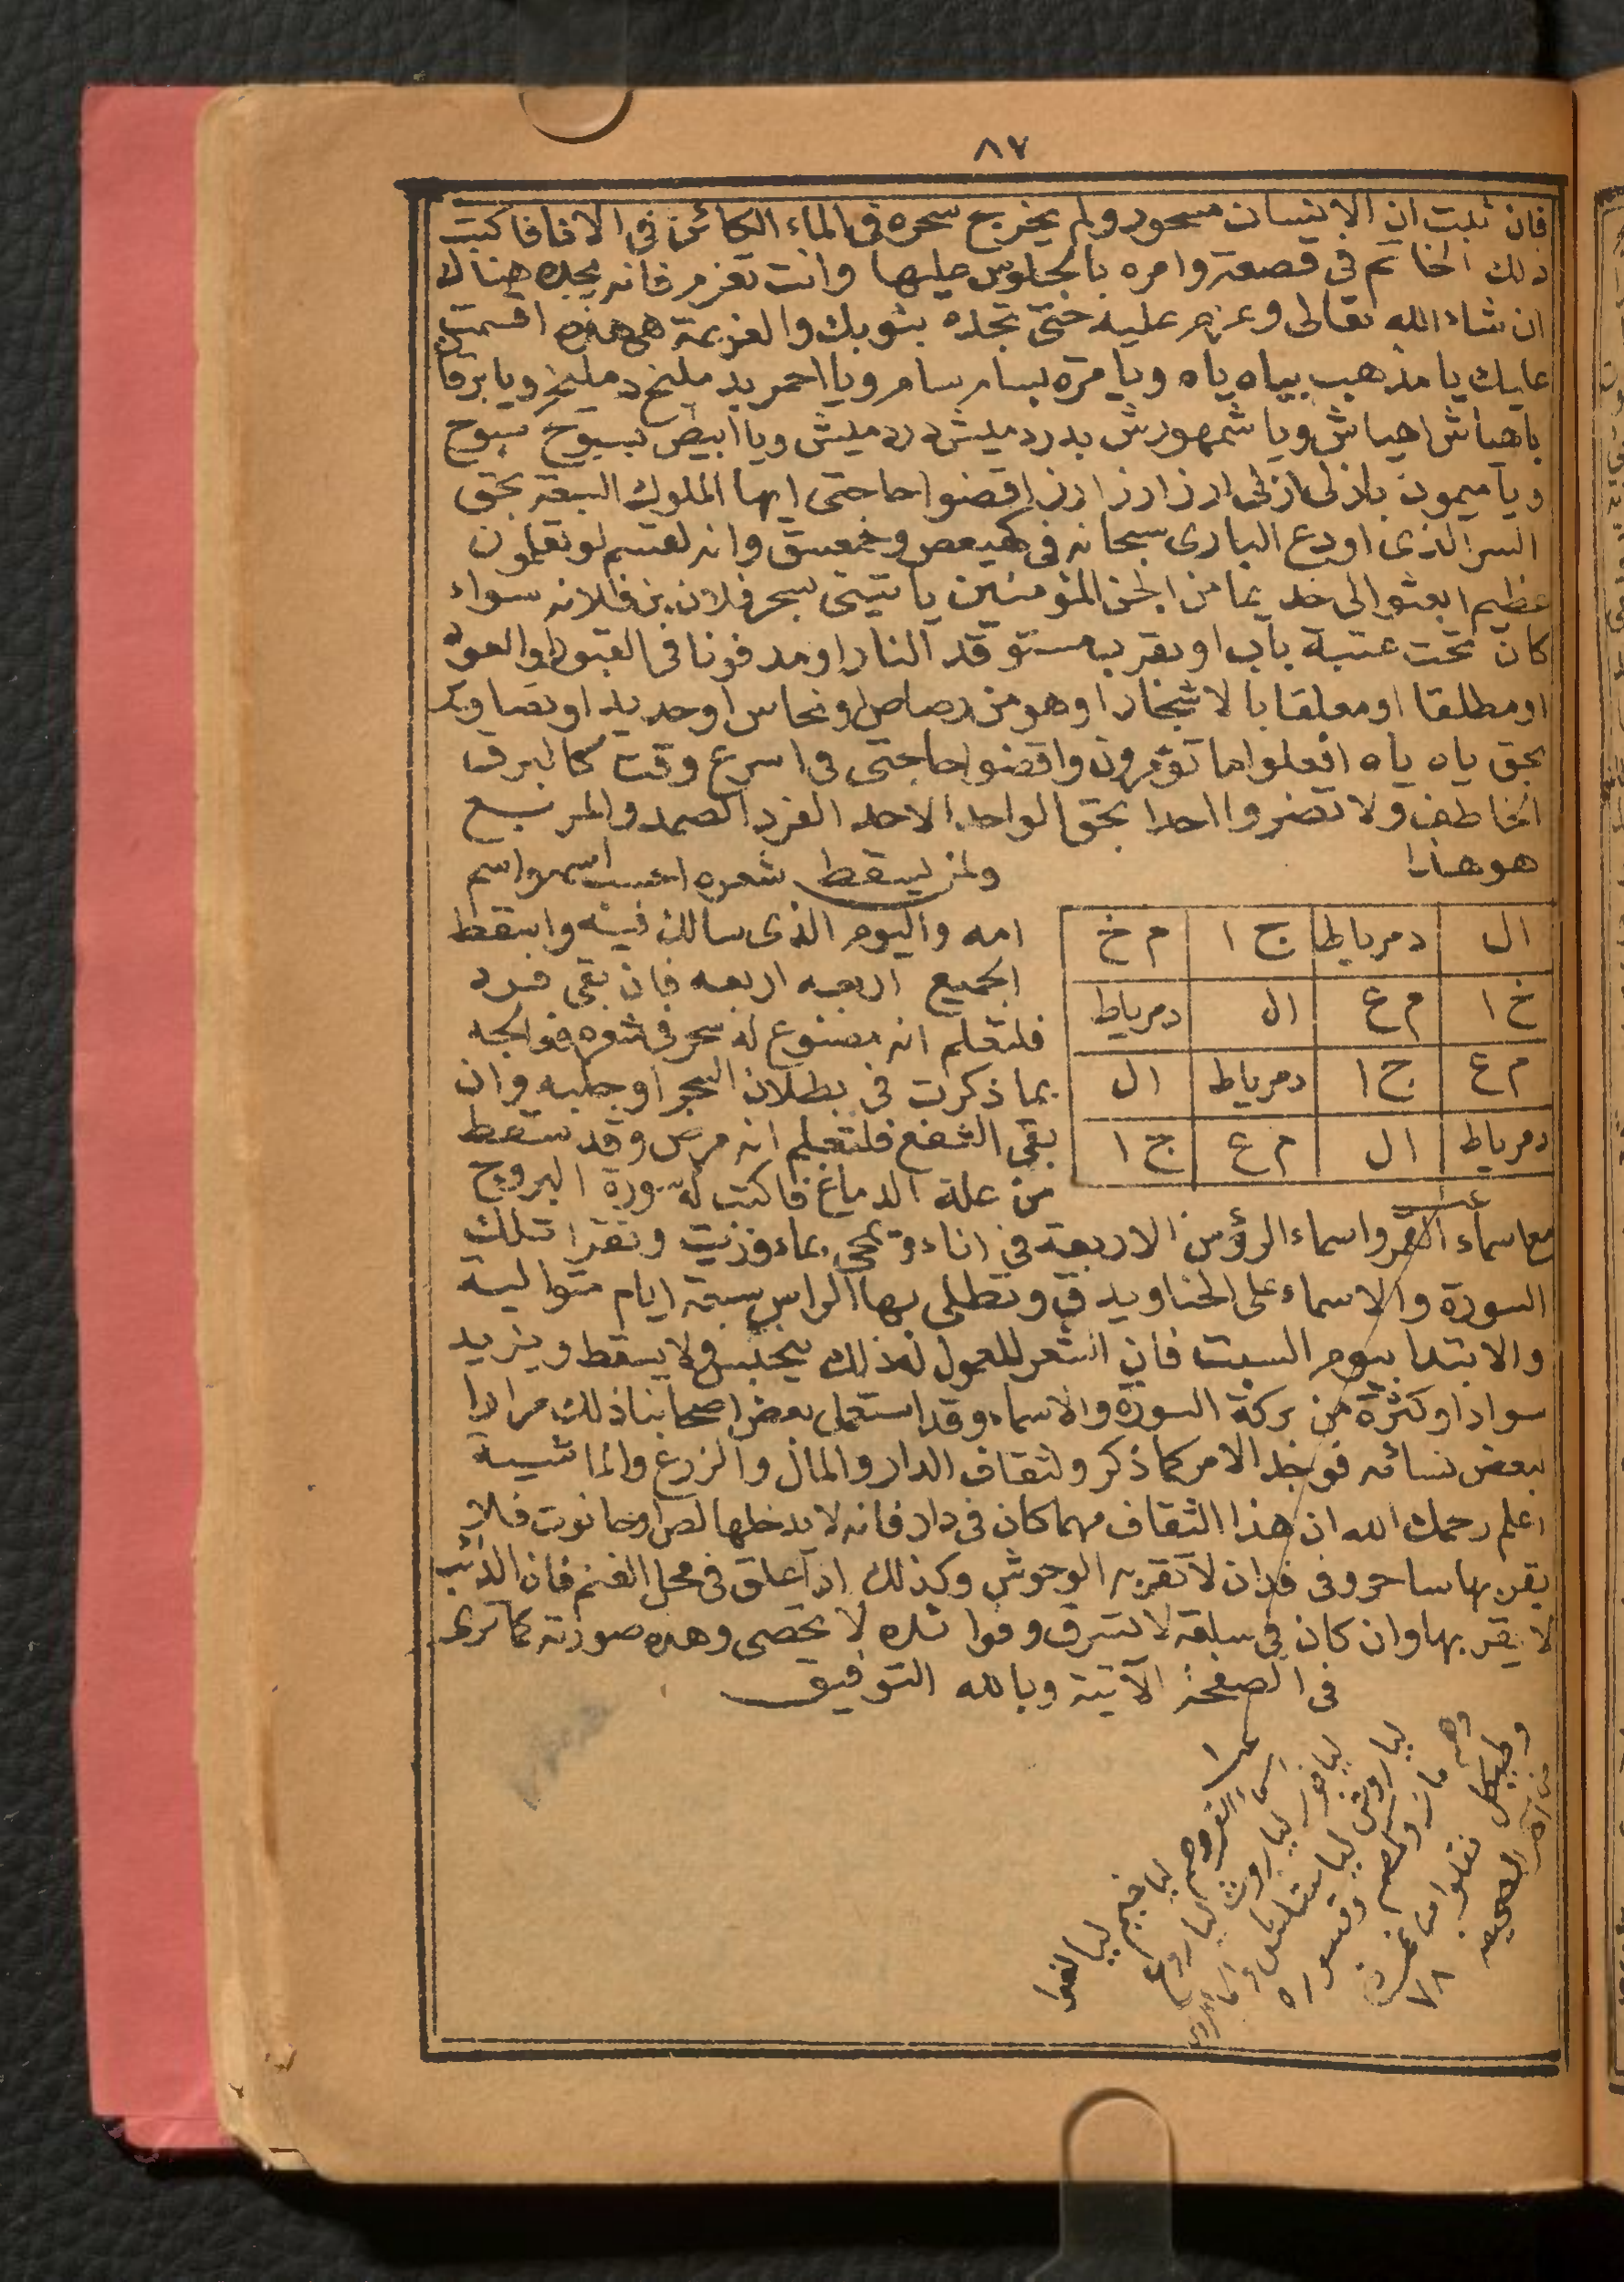 ٨٧
فان ثبت ان الانسان مسحور ولم يخرج سحره في الماء الكائن في الانا فاكتب
ذلك الخاتم في قصعة وامره بالجلوس عليها وانت تعزم فانه يجده هناك
ان شاء الله تعالى وعزم عليه حتى تجلده بثوبك والعزيمة هي هذه اقسمت
عليك يا مذهب بياه ياه ويا مرة بسام سام ويا احمر بد مليخ دمليخ ويا برقان
باهياش اهياش ويا شمهورش بدردميش دردميش ويا ابيض بسبوح سبوح
ويا ميمون بازلى ازلى ارز ارز ارز اقضوا حاجتى ايها الملوك السبعة بحق
السر الذى اودع البارى سبحانه فى كهيعص وحمعسق وانه لقسم لو تعلمون
عظيم ابعثوا الى خديما من الجن المؤمنين ياتينى بسحر فلان بن فلانه سواء
كان تحت عتبة باب او بقرب مستوقد النار او مدفونا فى القبور او
او مطلقا او معلقا بالاشجار او هو من رصاص او نحاس او حديد او تصاوير
بحق ياه ياه افعلوا ما تؤمرون واقضوا حاجتى فى اسرع وقت كالبرق
الخاطف ولا تضروا احدا بحق الواحد الاحد الفرد الصمد والمربع
هو هذا
ولمن يسقط شعره احسب اسمه واسم
ال | دمرياط | ج ا | م خ
خ ا | م ع | ال | دمرياط
م ع | ج ا | دمرياط | ال
دمرياط | ال | م ع | ج ا
امه واليوم الذى سالك فيه واسقط
الجميع اربعه اربعه فان بقى فرد
فلتعلم انه مصنوع له سحر فى شعره فعالجه
بما ذكرت فى بطلان السحر او جلبه وان
بقى الشفع فلتعلم انه مرض وقد سقط
من علة الدماغ فاكتب له سورة البروج
مع اسماء القمر واسماء الرؤس الاربعة فى اناء وتمحى بماء وزيت وتقرا تلك
السورة والاسماء على الحنا ويدق وتطلى بها الراس سبعة ايام متواليه
والابتدا بيوم السبت فان الشعر للمعمول له ذلك يحتبس ولا يسقط ويزيد
سوادا وكثرة من بركة السورة والاسماء وقد استعمل بعض اصحابنا ذلك مرارا
لبعض نسائه فوجد الامر كما ذكر ولثقاف الدار والمال والزرع والماشية
اعلم رحمك الله ان هذا الثقاف مهما كان فى دار فانه لا يدخلها لص او حانوت فلا
يقربها ساحر وفى فدان لا تقربه الوحوش وكذلك اذا علق فى محل الغنم فان الذئب
لا يقربها وان كان فى سلعة لا تسرق وفوائده لا تحصى وهذه صورته كما ترى
فى الصفحة الآتية وبالله التوفيق
اسماء القمر وهم لياخيم ليالغوا
ليافور ليا روث ليا روغ
ليا روش ليا شلش
وهم مازر وقسورة
وطيكل